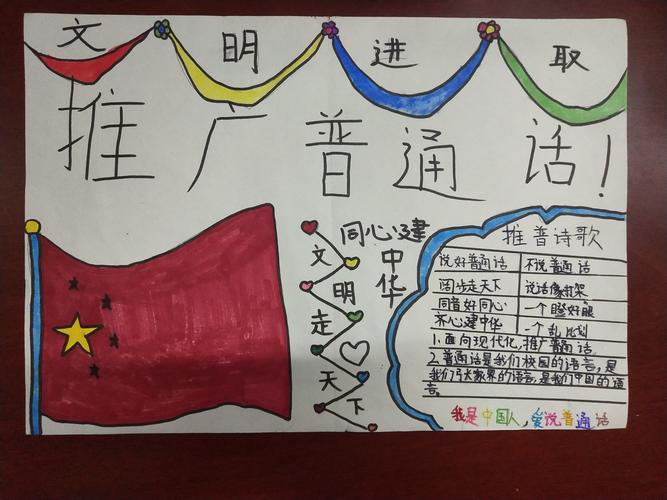 文明进取
推广普通话！
同心建
中华
文明走天下
推普诗歌
说好普通话 不说普通话
阔步走天下 说话像打架
同音好同心 一个瞪好眼
齐心建中华 一个乱比划
1.面向现代化，推广普通话。
2.普通话是我们校园的语言，是
我们的语言，是我们中国的语
言。
我是中国人，爱说普通话